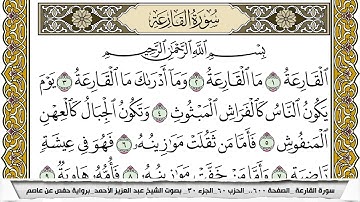 سُورَةُ القَارِعَةِ
بِسْمِ اللَّهِ الرَّحْمَٰنِ الرَّحِيمِ
الْقَارِعَةُ ١ مَا الْقَارِعَةُ ٢ وَمَا أَدْرَىٰكَ مَا الْقَارِعَةُ ٣ يَوْمَ
يَكُونُ النَّاسُ كَالْفَرَاشِ الْمَبْثُوثِ ٤ وَتَكُونُ الْجِبَالُ كَالْعِهْنِ
الْمَنفُوشِ ٥ فَأَمَّا مَن ثَقُلَتْ مَوَٰزِينُهُۥ ٦ فَهُوَ فِي عِيشَةٍ
رَّاضِيَةٍ ٧ وَأَمَّا مَنْ خَفَّتْ مَوَٰزِينُهُۥ ٨ فَأُمُّهُۥ هَاوِيَةٌ ٩
سورة القارعة_الصفحة ٦٠٠_ الحزب ٦٠_الجزء ٣٠_ بصوت الشيخ عبد العزيز الأحمد_برواية حفص عن عاصم